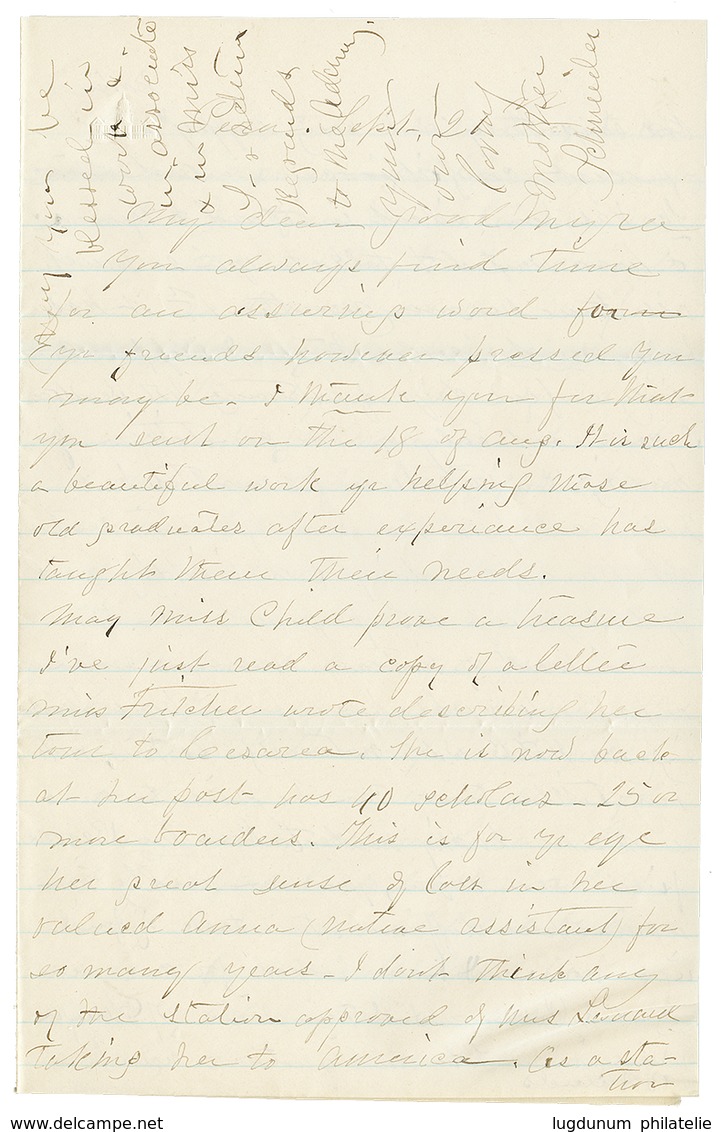 May you be
blessed in
work &
associate
& in Miss
return
Regards
to Mrs
yrs
own
Mother
Schneider
Sept. 2
My dear good Myra
You always find time
for an assuring word for
yr friends however pressed you
may be - I thank you for that
you sent on the 18 of Aug. It is such
a beautiful work yr helping those
old graduates after experiance has
taught them their needs.
May Miss Child prove a treasure
I've just read a copy of a letter
Miss Fritcher wrote describing her
tour to Cesarea. She is now back
at her post has 40 scholars - 25 or
more boarders. This is for yr eye
her great sense of loss in her
valued Anna (native assistant) for
so many years - I don't think any
of the station approved of Mrs Leonard
taking her to America. As a sta-
tion
lugdunum philatelie
www.delcampe.net